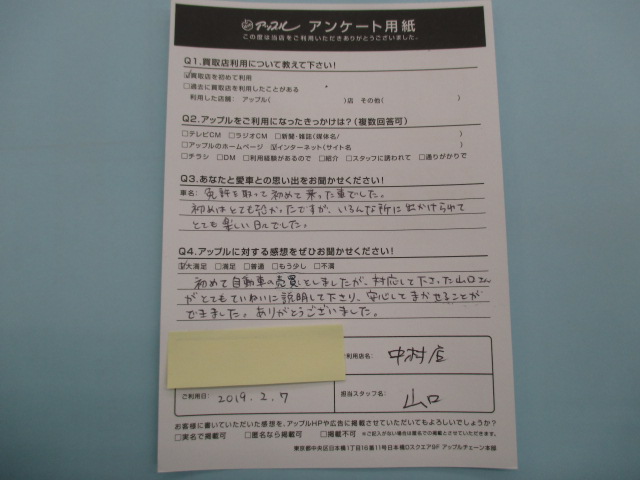 アップル アンケート用紙
この度は当店をご利用いただきありがとうございました。
Q1.買取店利用について教えて下さい!
☑買取店を初めて利用
□過去に買取店を利用したことがある
利用した店舗: アップル( )店 その他( )
Q2.アップルをご利用になったきっかけは?(複数回答可)
□テレビCM □ラジオCM □新聞・雑誌(媒体名/ )
□アップルのホームページ ☑インターネット(サイト名 )
□チラシ □DM □利用経験があるので □紹介 □スタッフに誘われて □通りがかりで
Q3.あなたと愛車との思い出をお聞かせください!
車名: 免許を取って初めて乗った車でした。
初めはとても恐かったですが、いろんな所に出かけられて
とても楽しい日々でした。
Q4.アップルに対する感想をぜひお聞かせください!
☑大満足 □満足 □普通 □もう少し □不満
初めて自動車の売買をしましたが、対応して下さった山口さん
がとてもていねいに説明して下さり、安心してまかせることが
できました。ありがとうございました。
ご利用店名: 中村店
ご利用日: 2019.2.7
担当スタッフ名: 山口
お客様に書いていただいた感想を、アップルHPや広告に掲載させていただいてもよろしいでしょうか?
□実名で掲載可 □匿名なら掲載可 □掲載不可 ※ご記入がない場合は匿名での掲載とさせていただきます。
東京都中央区日本橋1丁目16番11号日本橋DスクエアBF アップルチェーン本部